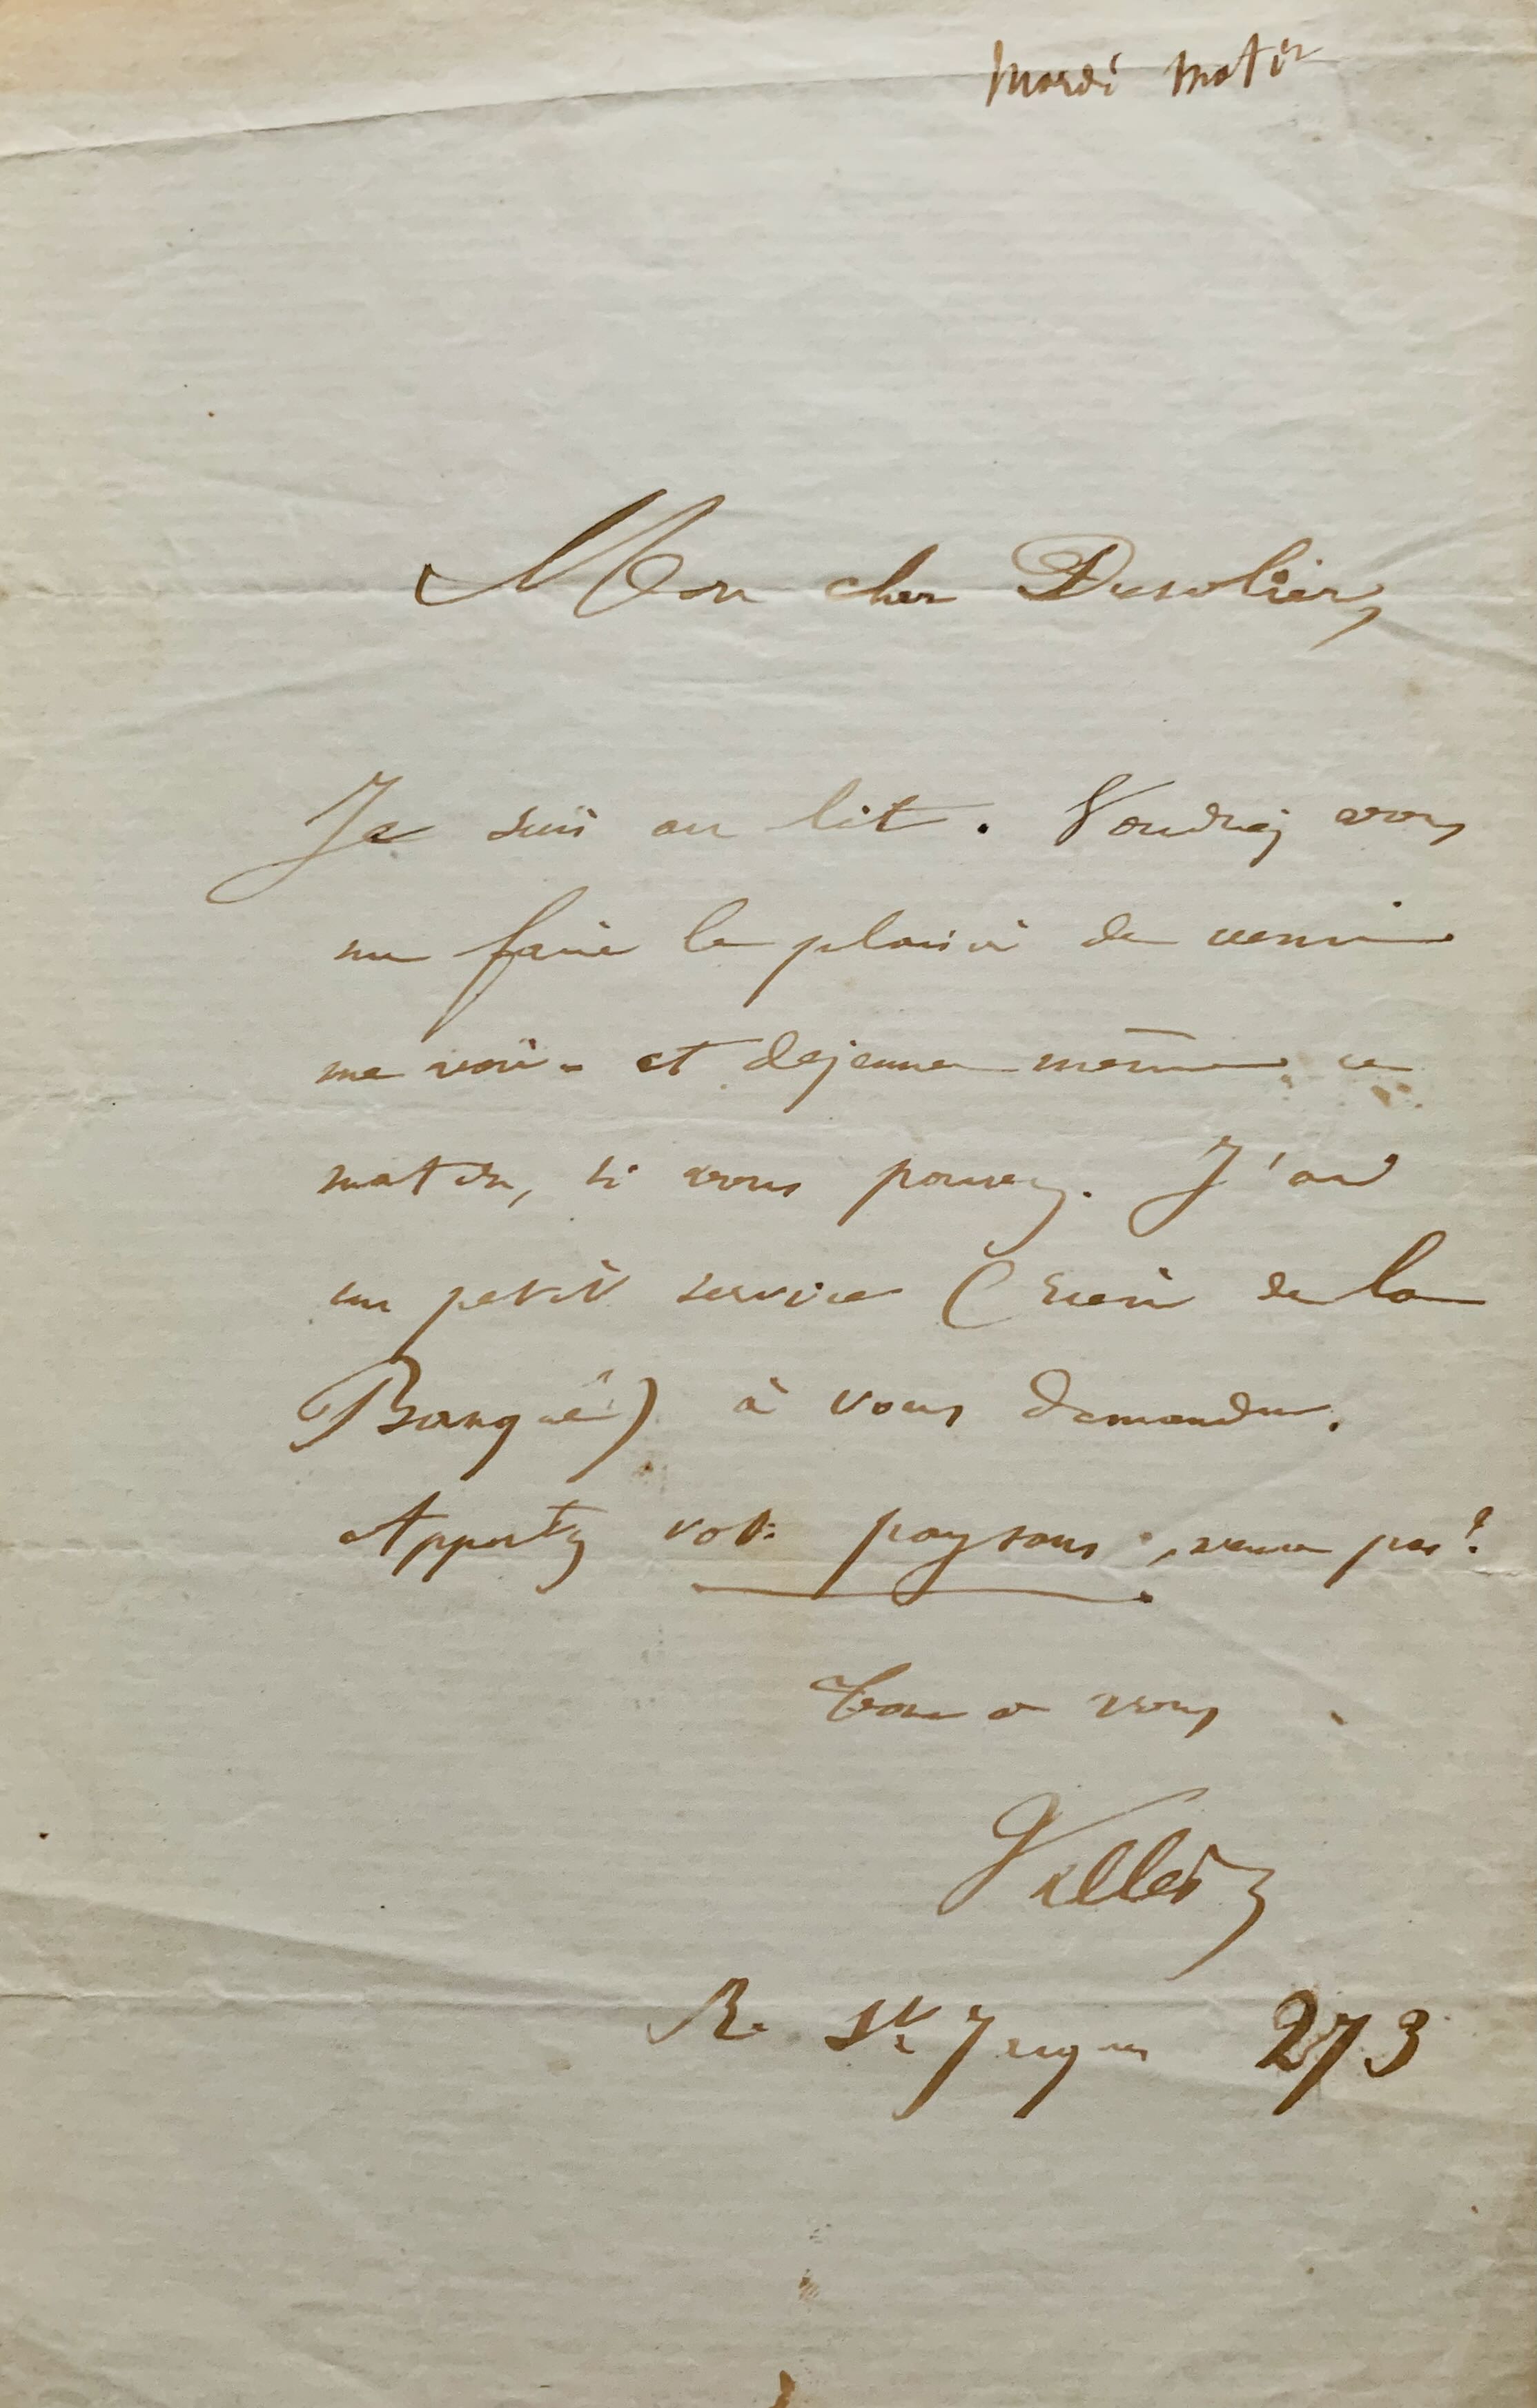 Mardi matin
Mon cher Dusolier,
Je suis au lit. Voudriez vous
me faire le plaisir de venir
me voir - et déjeuner même ce
matin, si vous pouvez. J'ai
un petit service (rien de la
Banque) à vous demander.
Apportez votre paysans, 
Tout à vous
Vallès
R. St Jacques 273